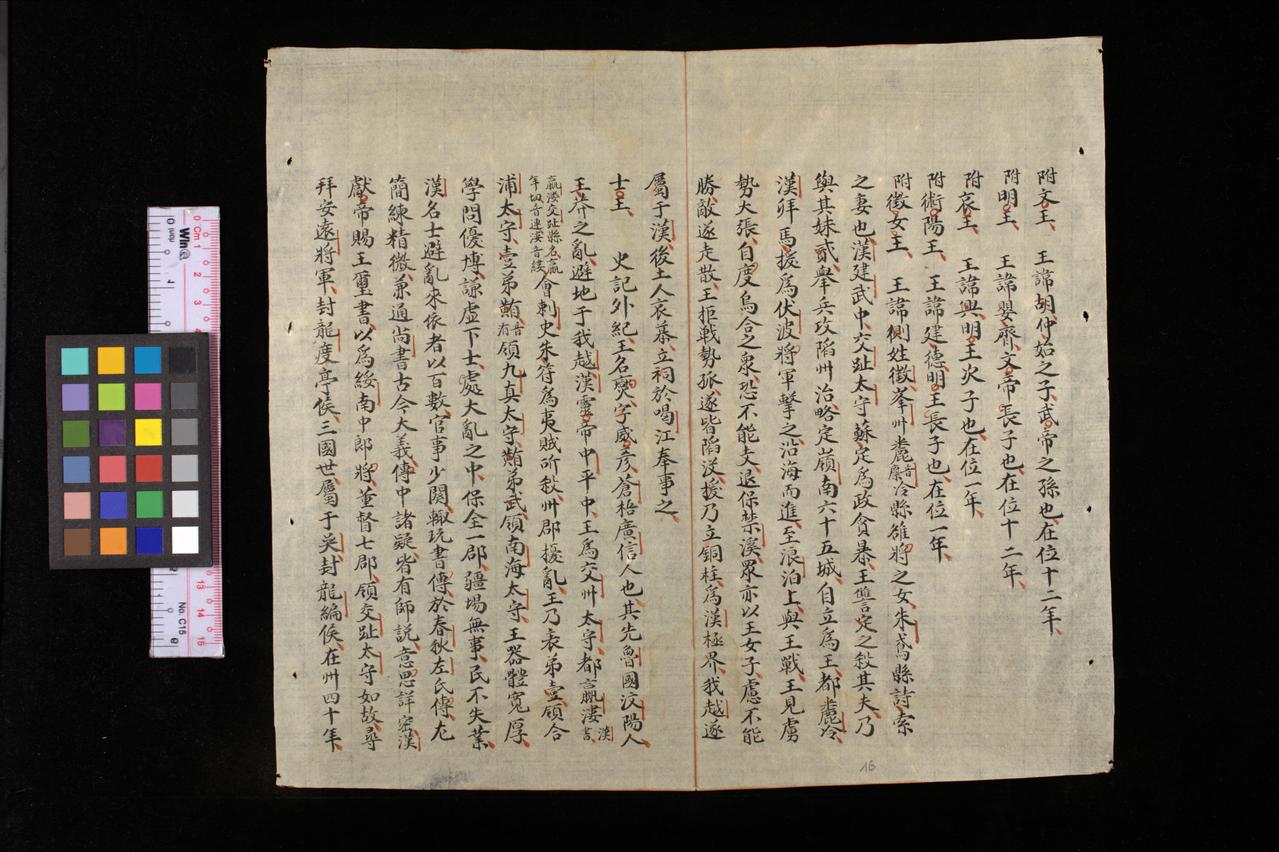 附文王 王諱胡仲始之子武帝之孫也在位十二年
附明王 王諱嬰齊文帝長子也在位十二年
附哀王 王諱興明王次子也在位一年
附術陽王 王諱建德明王長子也在位一年
附徵女王 王諱側姓徵峯州麊音麋泠縣雄將之女朱鳶縣詩索
之妻也漢建武中交趾太守蘇定爲政貪暴王讐定之殺其夫乃
與其妹貳舉兵攻陷州治略定嶺南六十五城自立爲王都麊泠
漢拜馬援爲伏波將軍擊之沿海而進至浪泊上與王戰王見虜
勢大張自度烏合之衆恐不能支退保禁溪眾亦以王女子慮不能
勝敵遂走散王拒戰勢孤遂皆陷沒援乃立銅柱爲漢極界我越遂
屬于漢後土人哀慕立祠於喝江奉事之
士王 史記外紀王名燮字威彥蒼梧廣信人也其先魯國汶陽人
王莽之亂避地于我越漢靈帝中平中王爲交州太守都羸漊漢書
羸漊交趾縣名羸
年切音連漊音縷會刺史朱符爲夷賊所殺州郡擾亂王乃表弟壹領合
浦太守壹弟䵋音有領九真太守䵋弟武領南海太守王器體寬厚
學問優博謙虛下士處大亂之中保全一郡疆場無事民不失業
漢名士避亂來依者以百數官事少閱輒玩書傳於春秋左氏傳尤
簡練精微兼通尚書古今大義傳中諸疑皆有師說意思詳密漢
獻帝賜王璽書以爲綏南中郎將董督七郡領交趾太守如故尋
拜安遠將軍封龍度亭侯三國世屬于吳封龍編侯在州四十年
16
Cm 1
4
13
14
15
No. C15